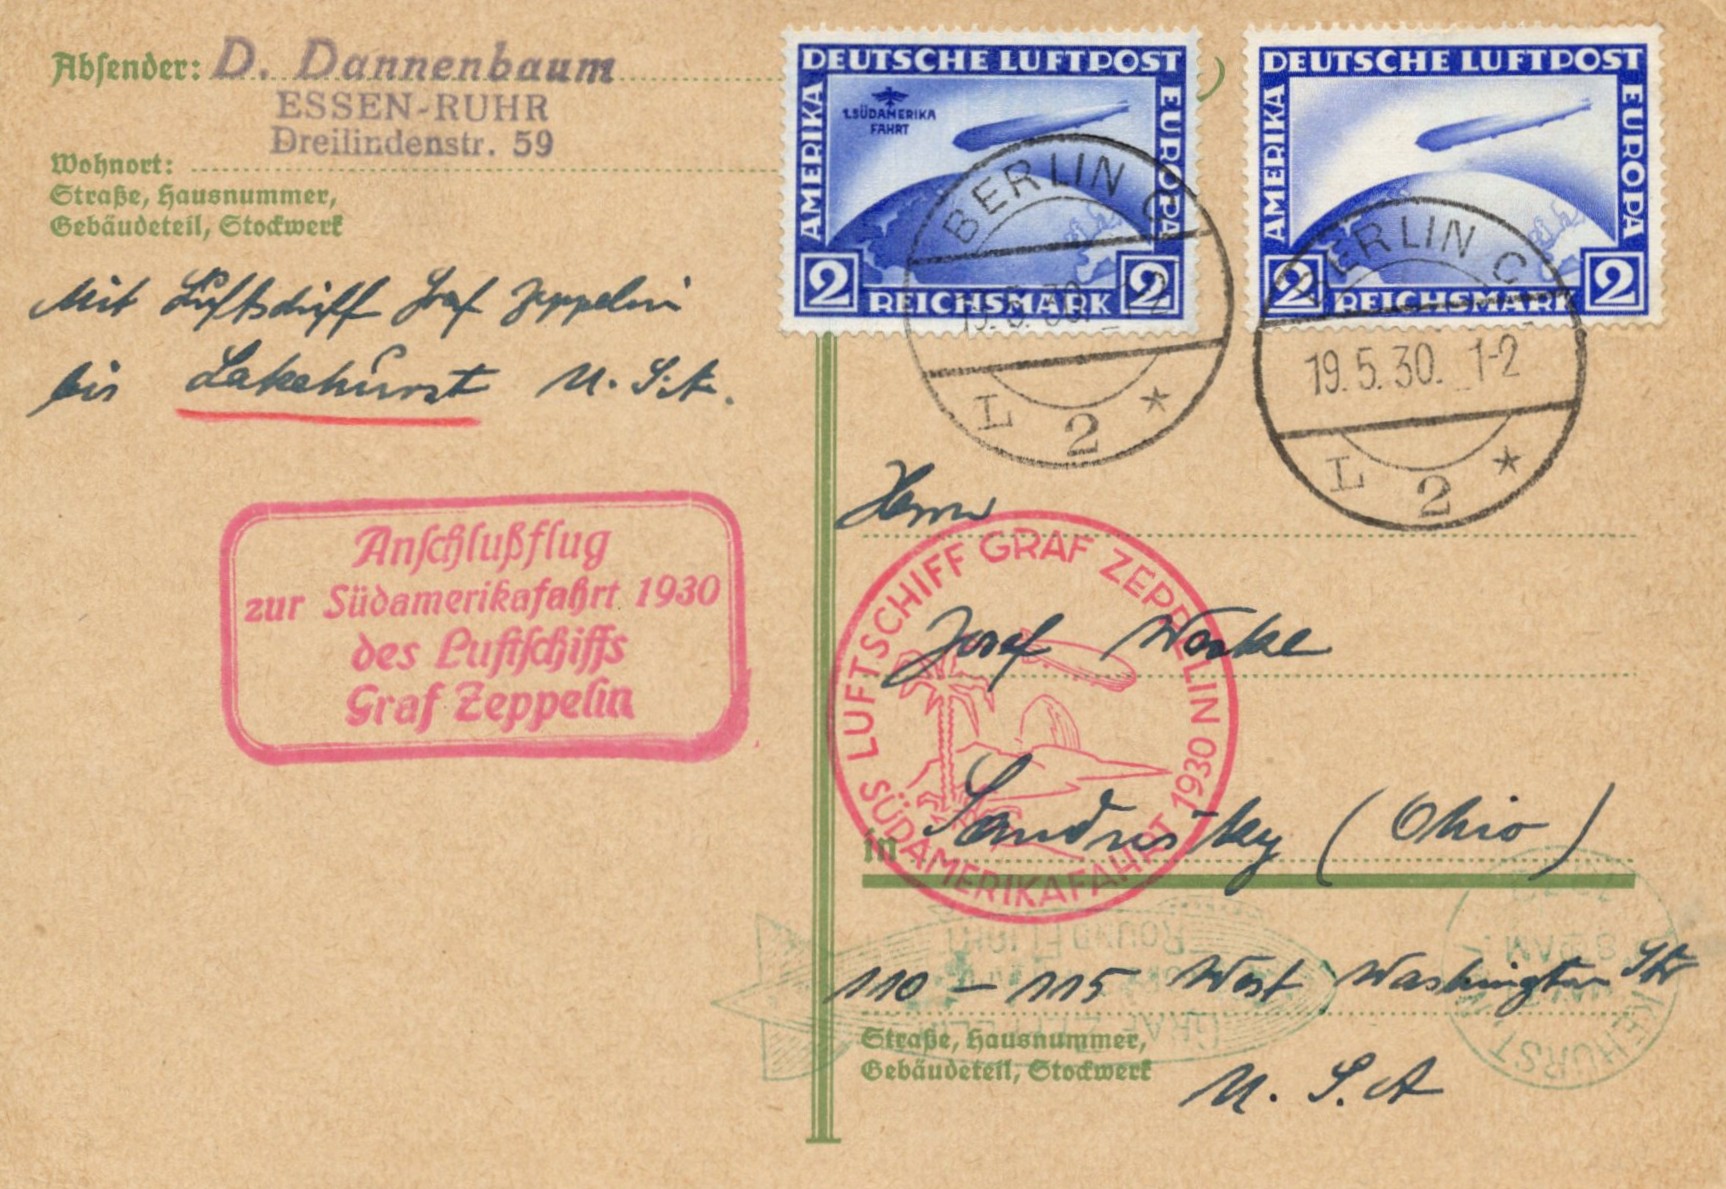 Absender: D. Dannenbaum
ESSEN-RUHR
Dreilindenstr. 59
Wohnort:
Straße, Hausnummer,
Gebäudeteil, Stockwerk
Mit Luftschiff Graf Zeppelin
bis Lakehurst U.S.A.
DEUTSCHE LUFTPOST
AMERIKA
EUROPA
1.SÜDAMERIKA
FAHRT
2 REICHSMARK 2
DEUTSCHE LUFTPOST
AMERIKA
EUROPA
2 REICHSMARK 2
BERLIN C
19.5.30. 1-2
L 2 *
BERLIN C
19.5.30. 1-2
L 2 *
Anschlußflug
zur Südamerikafahrt 1930
des Luftschiffs
Graf Zeppelin
LUFTSCHIFF GRAF ZEPPELIN
SÜDAMERIKAFAHRT 1930
Herrn
Josef Woske
in Sandusky (Ohio)
110 - 115 West Washington Str
Straße, Hausnummer,
Gebäudeteil, Stockwerk
U. S. A
GRAF ZEPPELIN
ROUND FLIGHT
KEHURST
8 AM